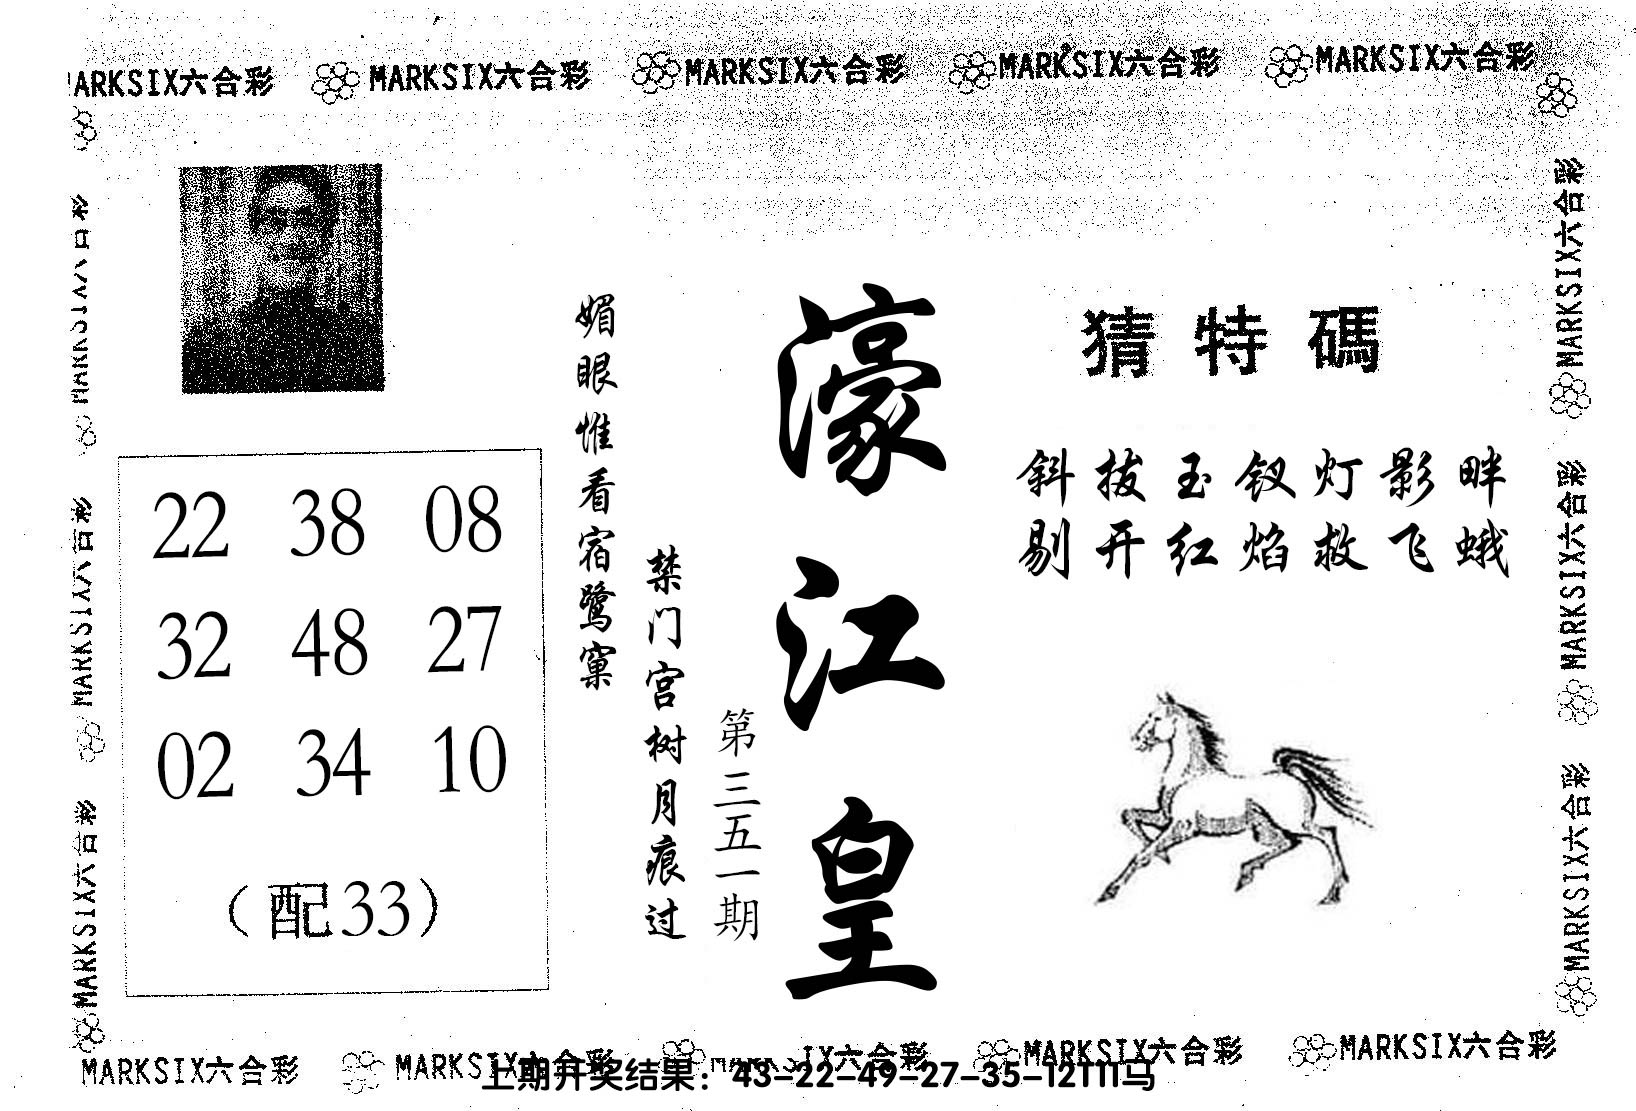 MARKSIX六合彩 MARKSIX六合彩 MARKSIX六合彩 MARKSIX六合彩 MARKSIX六合彩
猜特碼
斜拔玉钗灯影畔
剔开红焰救飞蛾
濠江皇
第三五一期
禁门宫树月痕过
媚眼惟看宿鹭窠
22 38 08
32 48 27
02 34 10
（配33）
MARKSIX六合彩
MARKSIX六合彩
MARKSIX六合彩
MARKSIX六合彩
MARKSIX六合彩
MARKSIX六合彩
MARKSIX六合彩 MARKSIX六合彩 IX六合彩 MARKSIX六合彩 MARKSIX六合彩
上期开奖结果：43-22-49-27-35-12T11马